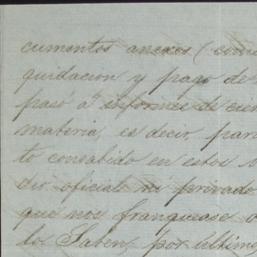 cumentos anexos (como
quidacion y pago de
pasó á informes de
materia, es decir, para
to consabido en estos
dir oficial ni privado
que nos franquease
los Saben, por último,